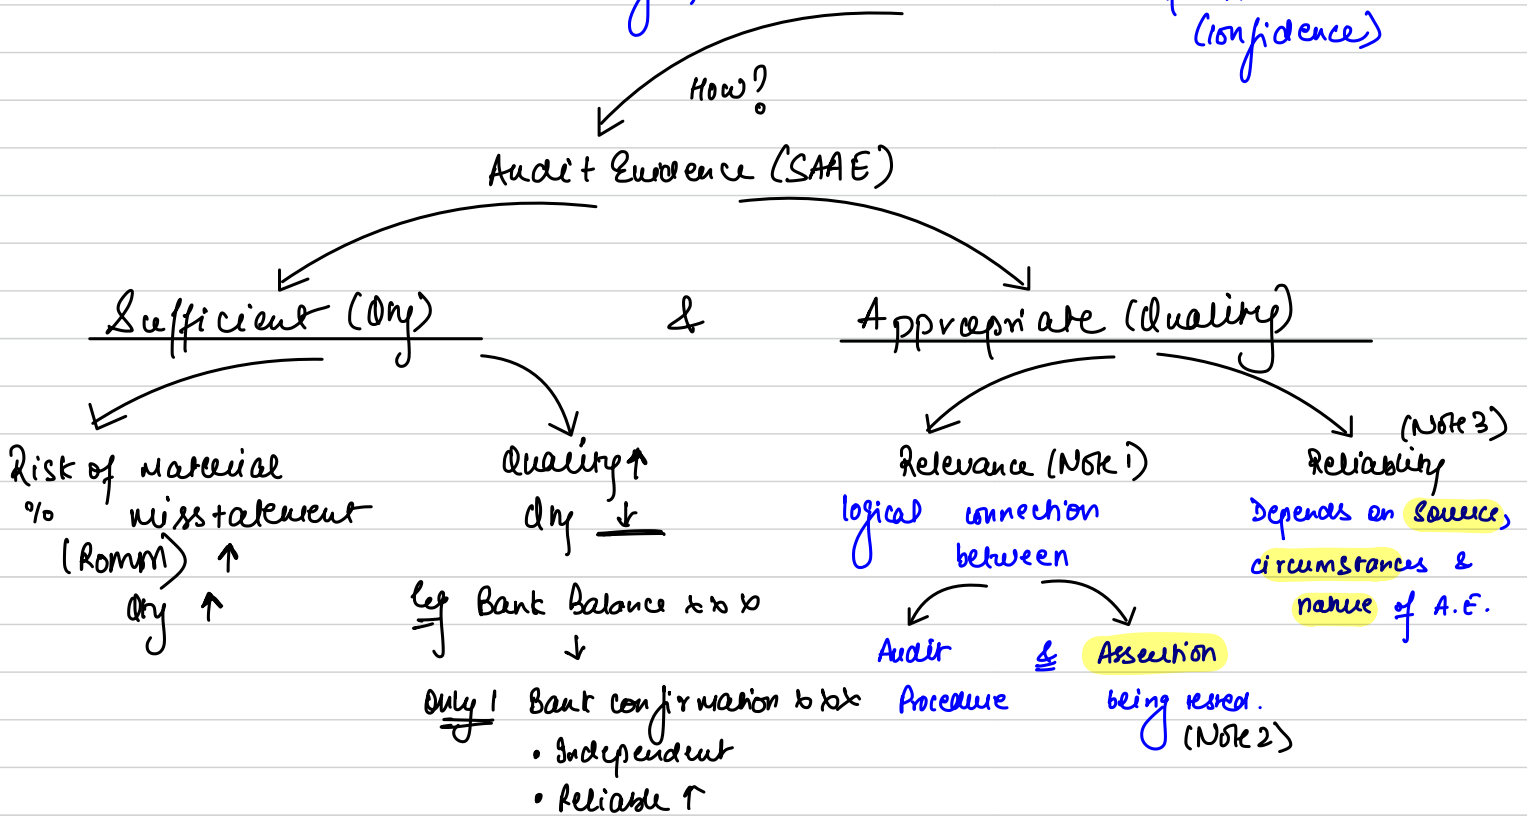 (confidence)
How?
Audit Evidence (SAAE)
Sufficient (Qty) & Appropriate (Quality)
Risk of material
% misstatement
(Romm) ↑
Qty ↑
Quality ↑
Qty ↓
eg Bank Balance xxx
↓
Only 1 Bank confirmation xxx
• Independent
• Reliable ↑
Relevance (Note 1)
logical connection
between
Audit & Assertion
Procedure being tested.
(Note 2)
(Note 3)
Reliability
Depends on source,
circumstances &
nature of A.E.